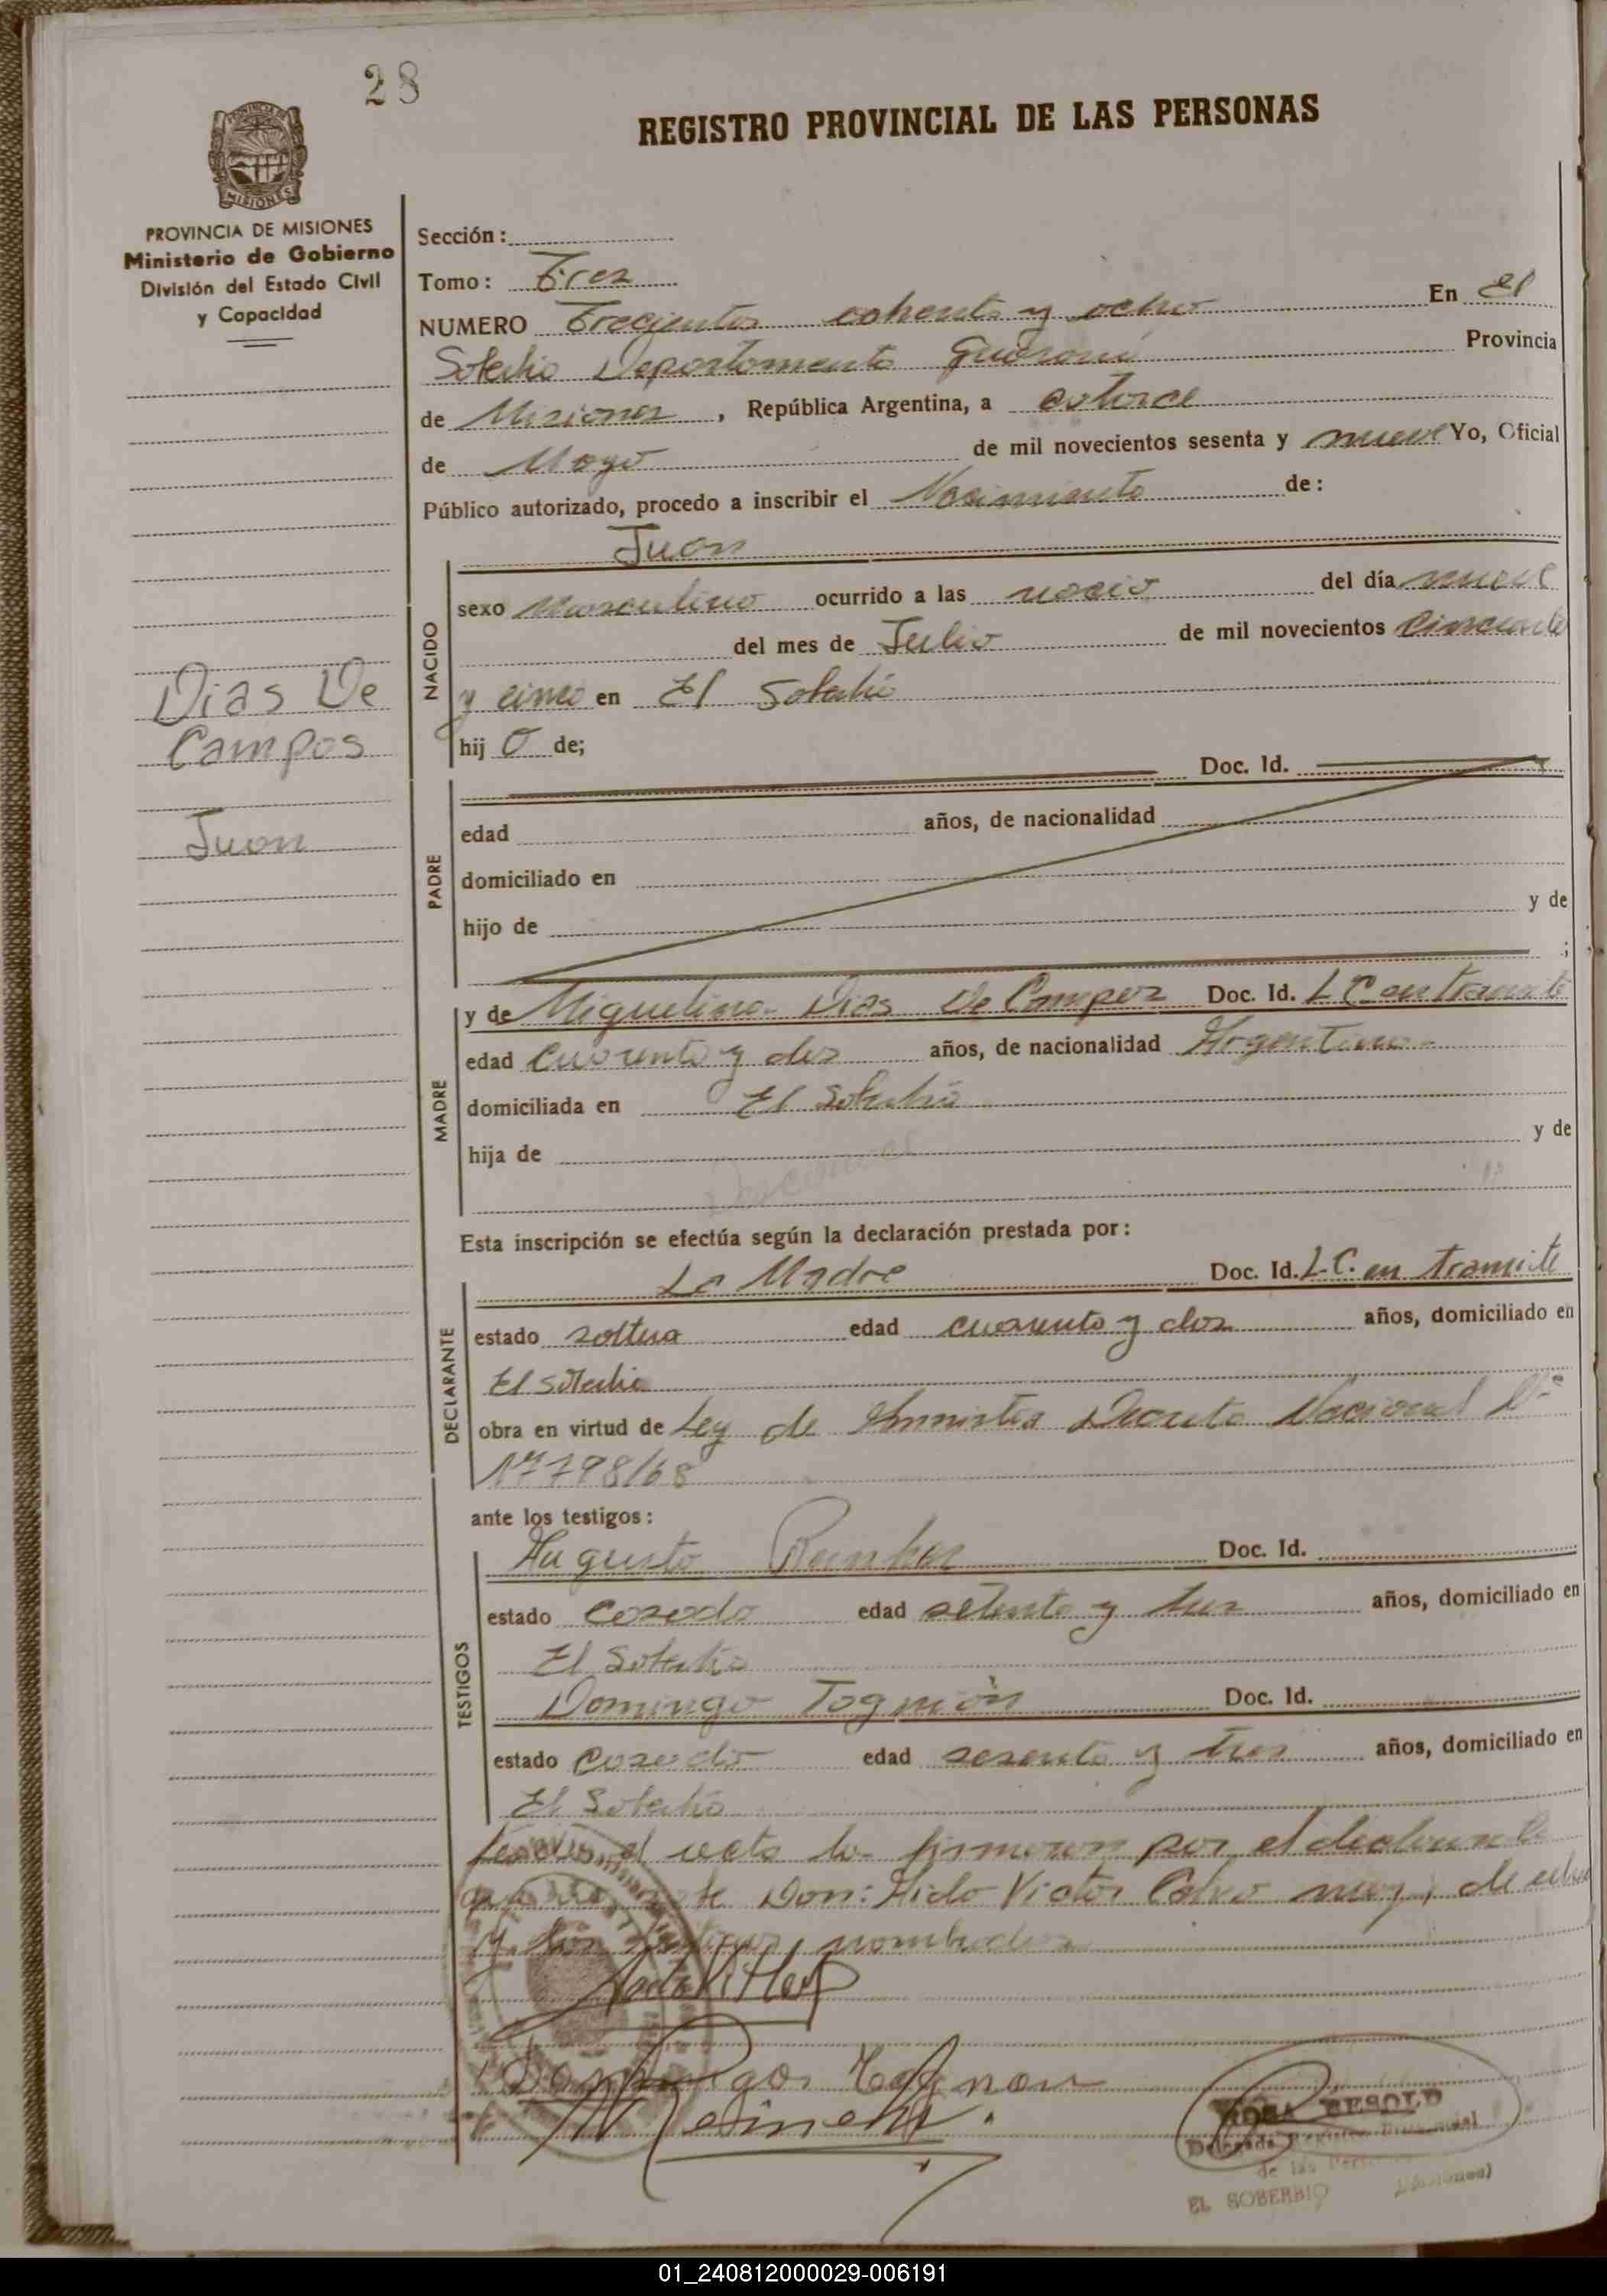 28
REGISTRO PROVINCIAL DE LAS PERSONAS
PROVINCIA DE MISIONES
MISIONES
PROVINCIA DE MISIONES
Ministerio de Gobierno
División del Estado Civil
y Capacidad
Dias De
Campos
Juan
Sección:
Tomo: Tres
NUMERO Trecientos ochenta y ocho En El
Soberbio Departamento Guaraní Provincia
de Misiones, República Argentina, a catorce
de Mayo de mil novecientos sesenta y nueve Yo, Oficial
Público autorizado, procedo a inscribir el Nacimiento de:
Juan
NACIDO
sexo Masculino ocurrido a las nacio del día nueve
del mes de Julio de mil novecientos Cincuenta
y cinco en El Soberbio
hij o de;
PADRE
Doc. Id.
edad años, de nacionalidad
domiciliado en
hijo de y de
;
MADRE
y de Miguelina Dias De Campos Doc. Id. L C en tramite
edad Cuarenta y dos años, de nacionalidad Argentina
domiciliada en El Soberbio
hija de y de
Esta inscripción se efectúa según la declaración prestada por:
DECLARANTE
La Madre Doc. Id. L.C. en tramite
estado soltera edad cuarenta y dos años, domiciliado en
El Soberbio
obra en virtud de Ley de Amnistia Decreto Nacional Nº
17798/68
ante los testigos:
TESTIGOS
Augusto Doc. Id.
estado Casado edad setenta y tres años, domiciliado en
El Soberbio
Domingo Tognon Doc. Id.
estado Casado edad sesenta y tres años, domiciliado en
El Soberbio
el acta la firmaron por el declarante
Don: Victor Calvo may, de edad
y los testigos nombrados
Domingos Tognon
ROSA BESOLD
Delegada Registro Provincial
de las Personas
EL SOBERBIO (Misiones)
01_240812000029-006191